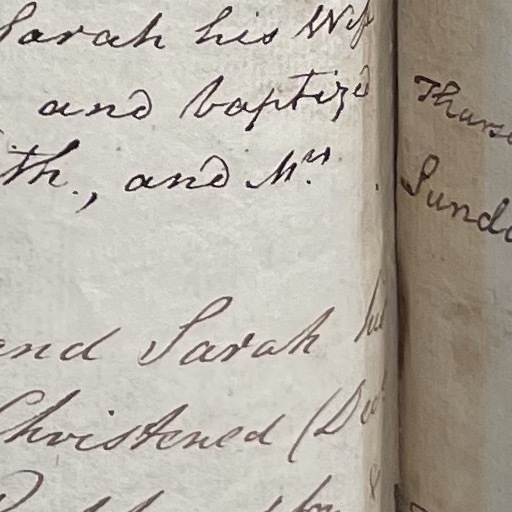 Sarah his Wife
and baptiz'd
th., and Mrs.
and Sarah his
Christened (Dec
Thurs
Sunda